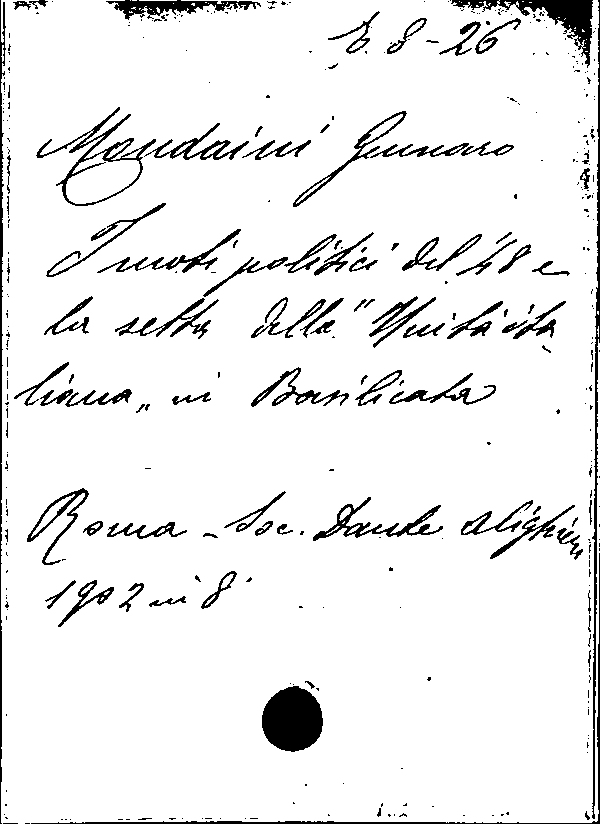 E. 8-26
Mondaini Gennaro
I moti politici del '48 e
la setta della "Unità ita
liana„ in Basilicata
Roma - Soc. Dante Alighieri
1902 in 8°